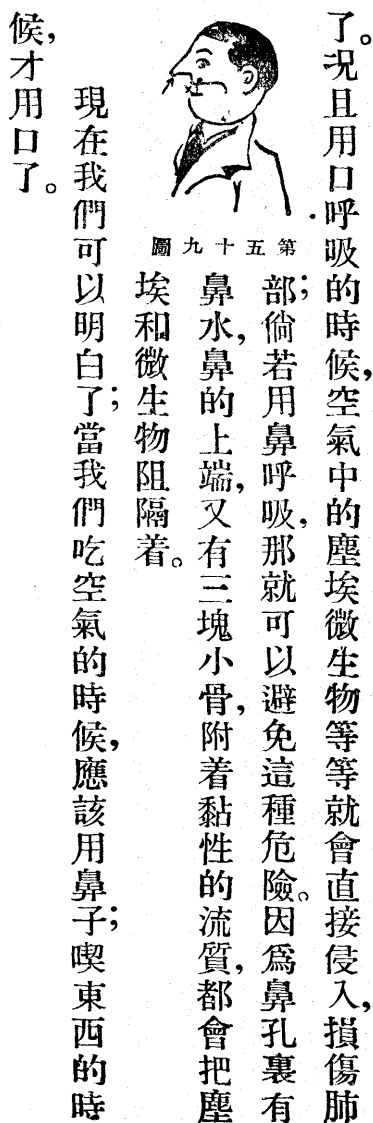 了。况且用口呼吸的時候，空氣中的塵埃微生物等等就會直接侵入，損傷肺
部；倘若用鼻呼吸，那就可以避免這種危險。因爲鼻孔裏有
鼻水，鼻的上端，又有三塊小骨，附着黏性的流質，都會把塵
埃和微生物阻隔着。
第五十九圖
現在我們可以明白了；當我們吃空氣的時候，應該用鼻子；喫東西的時
候，才用口了。